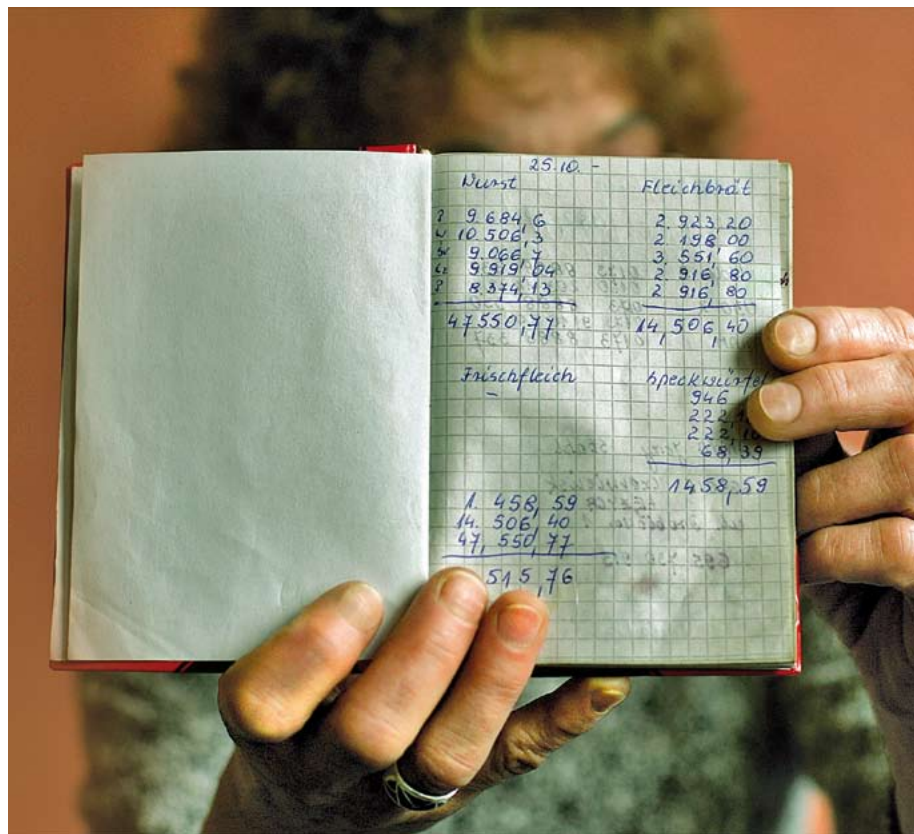 25.10. -
Wurst
9.684,6
10 506,3
9.066,7
9 919,04
8.374,13
47550,77
Fleichbrät
2. 923, 20
2 198, 00
3, 551, 60
2 916, 80
2 916, 80
14, 506, 40
Frischfleich
-
Speckwürfel
946
222,
222,
68,39
1458,59
1. 458, 59
14. 506, 40
47, 550, 77
515,76